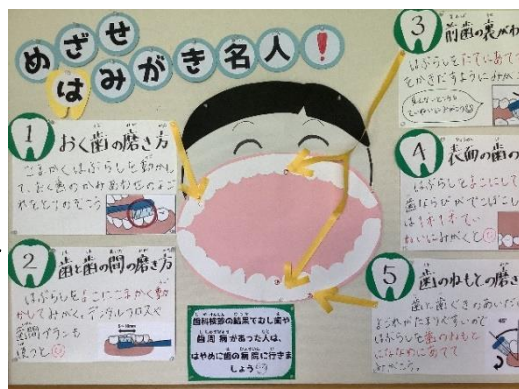 めざせ
はみがき名人!
1 おく歯の磨き方
こまかくはぶらしを動かし
て、おく歯のかみあわせのよご
れをとりのぞこう
2 歯と歯の間の磨き方
はぶらしをよこにこまかく動
かしてみがく。デンタルフロスや
歯間ブラシも
使うと
3 前歯の裏がわ
はぶらしをたてにあてて
をかきだすようにみがこ
4 表面の歯の
はぶらしをよこにして
歯ならびがでこぼこし
は1本1本てい
ねいにみがくと
5 歯のねもとの磨き
歯と歯ぐきのあいだに
よごれがたまりやすいので
はぶらしを歯のねもと
にななめにあてて
みがこう。
歯科検診の結果でむし歯や
歯周病があった人は、
はやめに歯の病院に行きま
しょう